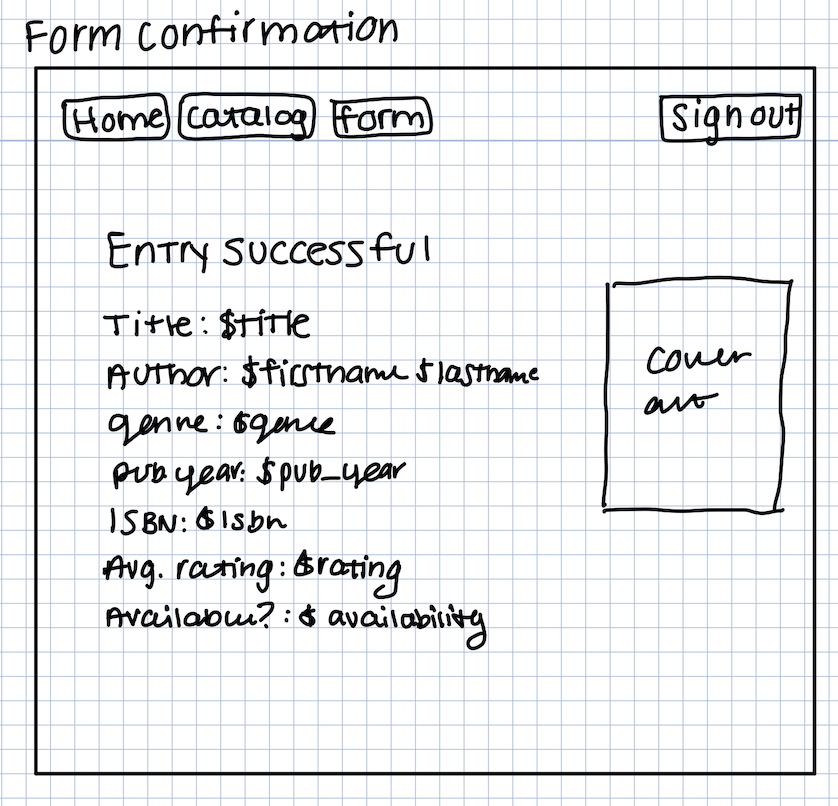 Form confirmation
Home catalog form sign out
Entry successful
Title: $title
Author: $firstname $lastname
genre: $genre
pub year: $pub_year
ISBN: $isbn
Avg. rating: $rating
Available?: $ availability
cover
art